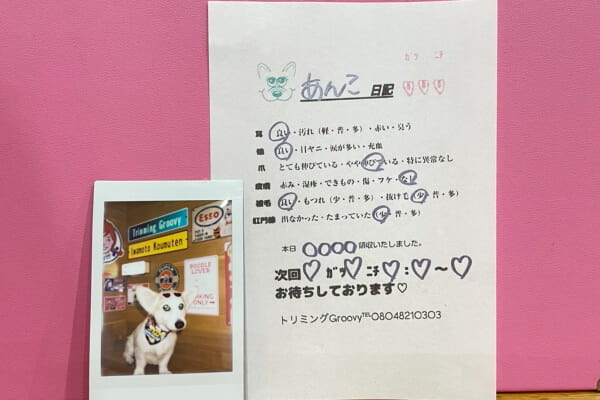 ガツ ニチ
あんこ 日記
耳 良い・汚れ(軽・普・多)・赤い・臭う
良い・目ヤニ・涙が多い・充血
爪 とても伸びている・やや伸びている・特に異常なし
皮膚 赤み・湿疹・できもの・傷・フケ・なし
被毛 良い・もつれ(少・普・多)・抜け毛(少・普・多)
肛門腺 出なかった・たまっていた(少・普・多)
本日 領収いたしました。
次回♡ガツ♡ニチ♡:♡~♡
お待ちしております♡
トリミングGroovy℡08048210303
Trimming Groovy
Iwamoto Koumuten
Esso
POODLE
LOVER
PARKING
ONLY